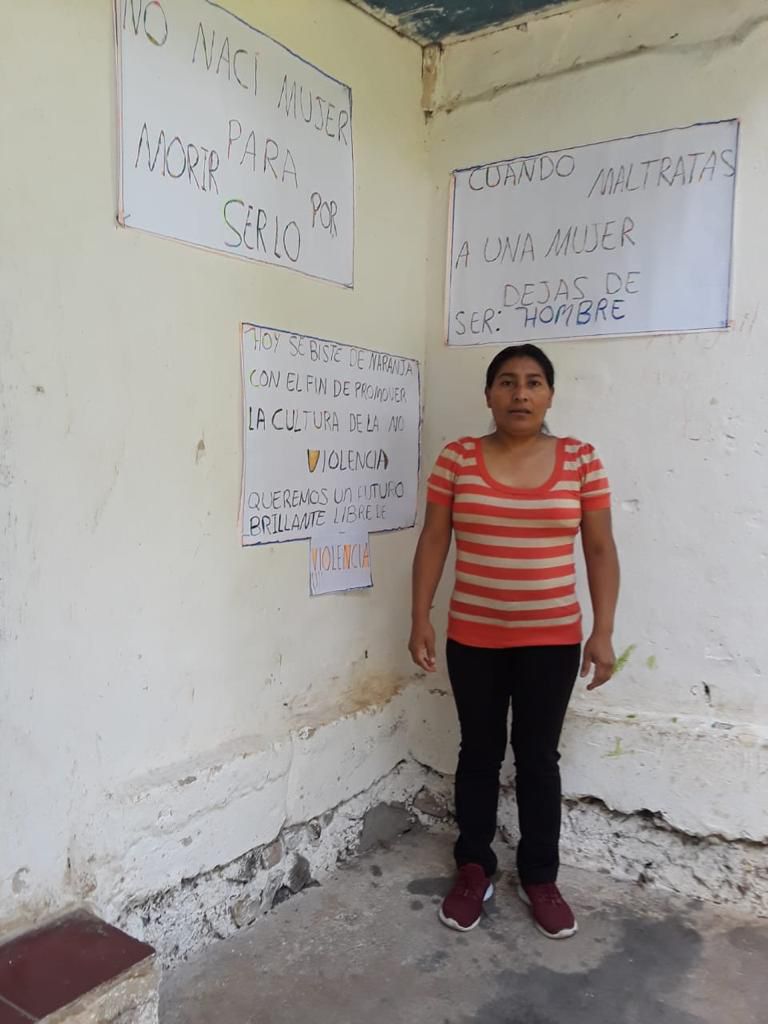 NO NACÍ MUJER
PARA
MORIR POR
SERLO
CUANDO MALTRATAS
A UNA MUJER
DEJAS DE
SER: HOMBRE
HOY SE BISTE DE NARANJA
CON EL FIN DE PROMOVER
LA CULTURA DE LA NO
VIOLENCIA
QUEREMOS UN FUTURO
BRILLANTE LIBRE DE
VIOLENCIA